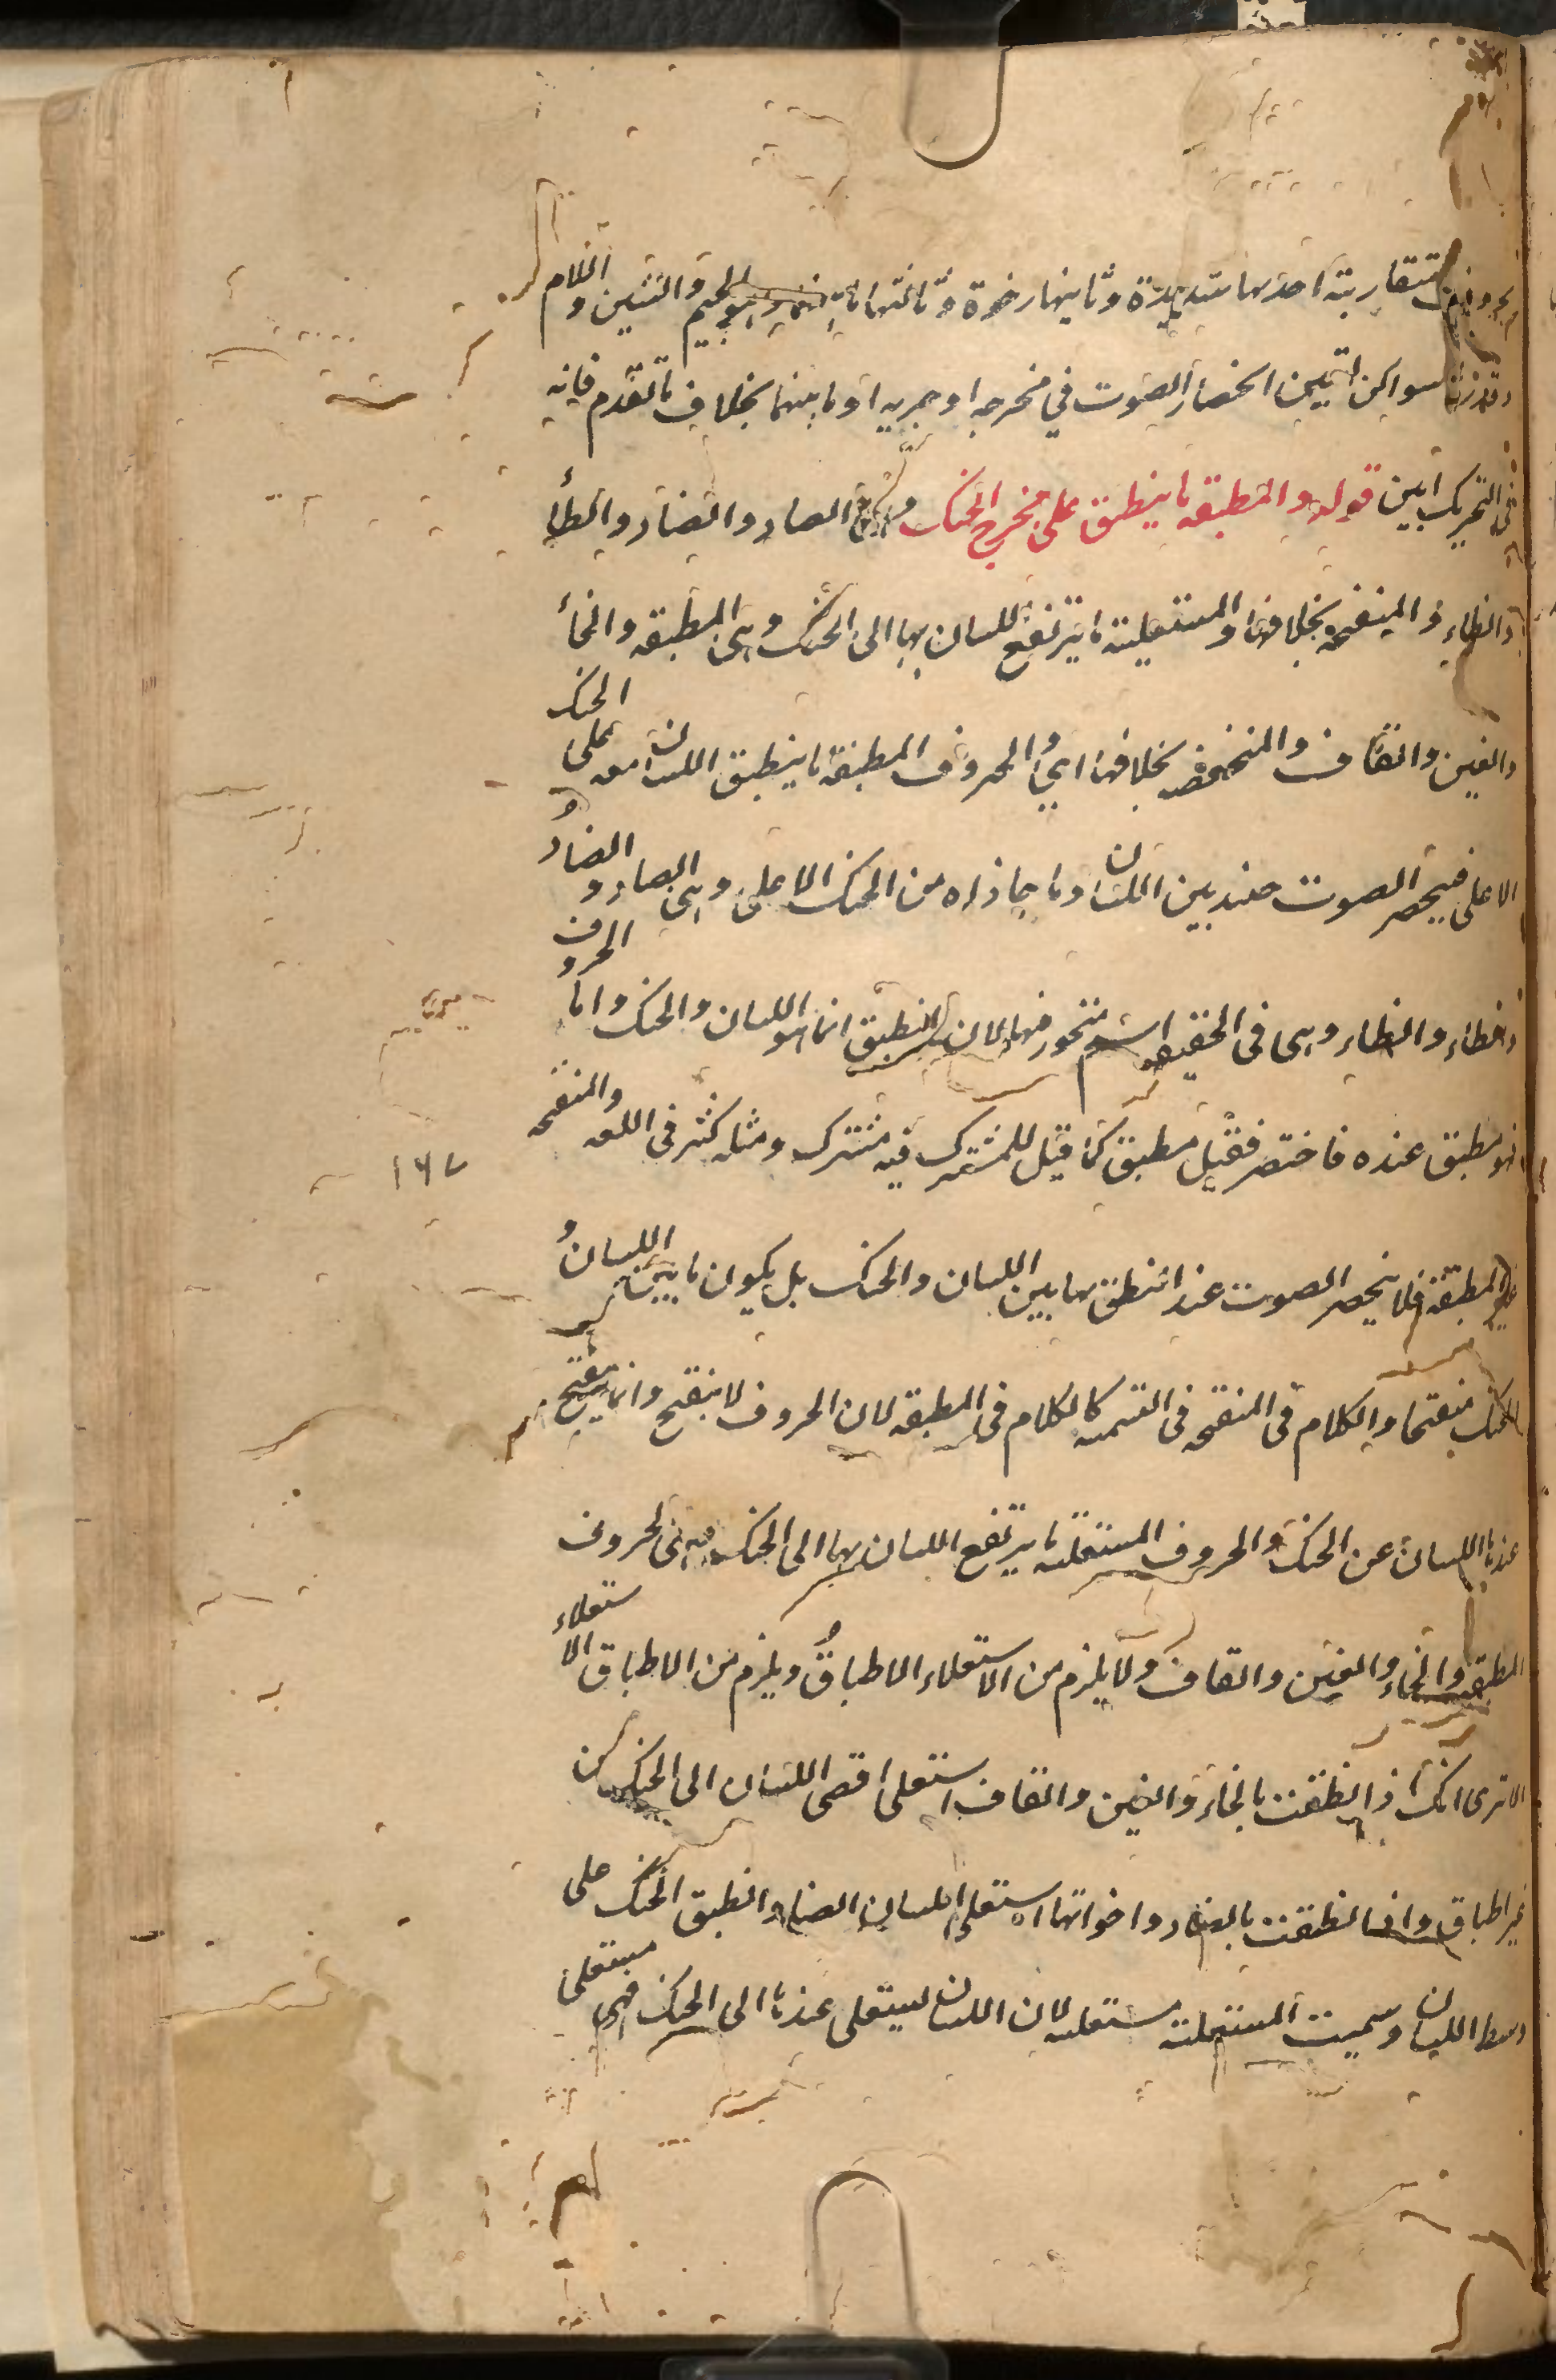 متقاربة احدها شديدة وثانيها رخوة وثالثها ما بينهما وهو الجيم والشين واللام
سواكن لتبين انحصار الصوت في مخرجه او جريه او ما بينهما بخلاف ما تقدم فانه
في التحريك ابين قوله والمطبقة ما ينطبق على مخرج الحنك وهي الصاد والضاد والطأ
والظاء والمنفتحة بخلافها والمستعلية ما يرتفع اللسان بها الى الحنك وهي المطبقة والخأ
والغين والقاف والمنخفضة بخلافها اي والحروف المطبقة ما ينطبق اللسان معه على الحنك
الاعلى فينحصر الصوت حينئذ بين اللسان وما حاذاه من الحنك الاعلى وهي الصاد والضاد و
والطاء والظاء وهي في الحقيقة اسم متجوز فيها لان المنطبق انما هو اللسان والحنك واما الحروف
فهو مطبق عنده فاختصر فقيل مطبق كما قيل للمشترك فيه مشترك ومثله كثير في اللغة والمنفتحة
١٤٧
غير المطبقة فلا ينحصر الصوت عند النطق بها بين اللسان والحنك بل يكون ما بين اللسان و
الحنك منفتحا والكلام في المنفتحة في التسمية كالكلام في المطبقة لان الحروف لا ينفتح وانما ينفتح
عندها اللسان عن الحنك والحروف المستعلية ما يرتفع اللسان بها الى الحنك وهي الحروف
المطبقة والخاء والغين والقاف ولا يلزم من الاستعلاء الاطباق ويلزم من الاطباق الاستعلاء
الا ترى انك اذا نطقت بالخاء والغين والقاف استعلى اقصى اللسان الى الحنك من
غير اطباق واذا نطقت بالصاد واخواتها استعلى اللسان ايضا وانطبق الحنك على
وسط اللسان وسميت المستعلية مستعلية لان اللسان يستعلي عندها الى الحنك فهي مستعلى